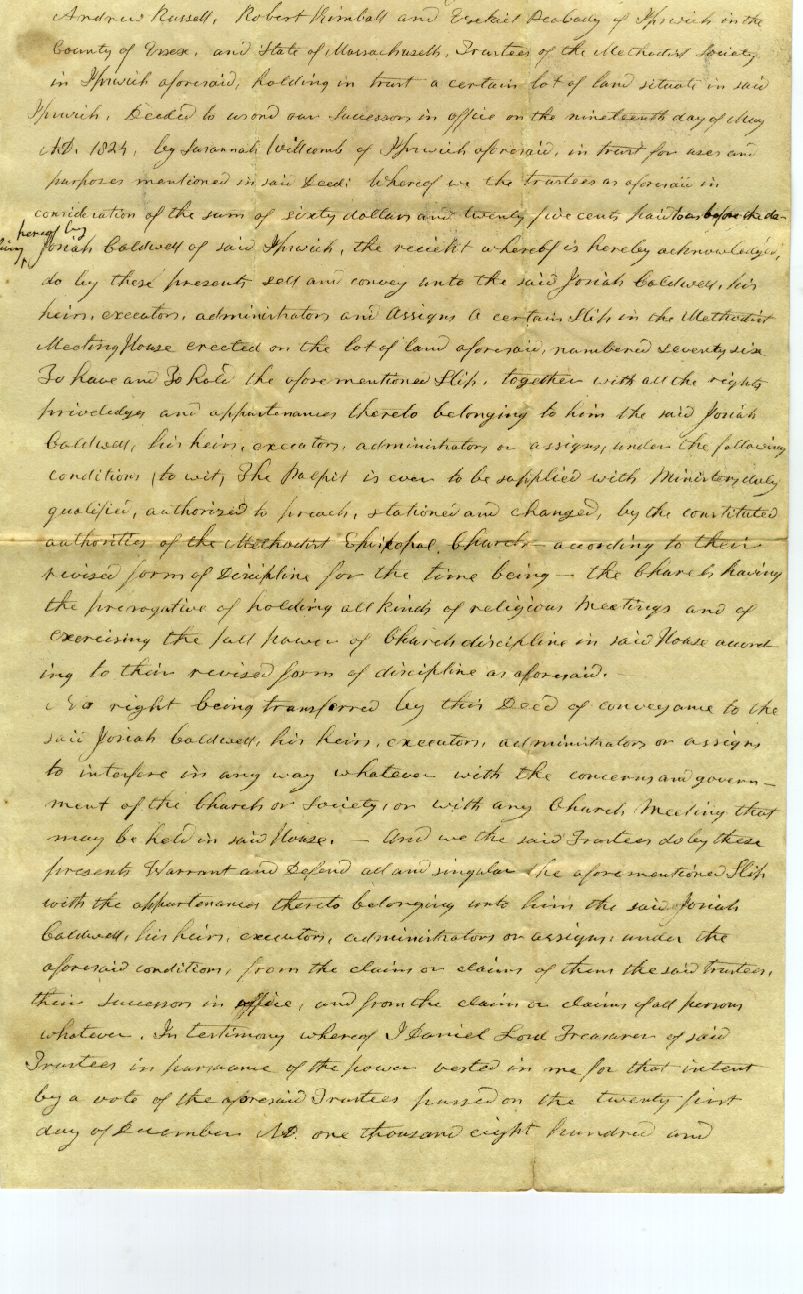 Andrew Russell, Robert Kimball and Ezekiel Peabody of Ipswich in the
County of Essex, and State of Massachusetts, Trustees of the Methodist Society
in Ipswich aforesaid, holding in trust a certain lot of land situate in said
Ipswich, Deeded to us and our Successors in office on the nineteenth day of May
AD. 1824, by Susannah Willcomb of Ipswich aforesaid, in trust for uses and
purposes mentioned in said Deed: Whereof we the trustees as aforesaid in
consideration of the sum of sixty dollars and twenty five cents paid to us before the de-
livery hereof by
Josiah Caldwell of said Ipswich, the reciept whereof is hereby acknowledged,
do by these presents sell and convey unto the said Josiah Caldwell, his
heirs, executors, administrators and assigns a certain Slip in the Methodist
Meeting House erected on the lot of land aforesaid, numbered seventy six
To have and To hold the afore mentioned Slip, together with all the rights
priviledges and appurtenances thereto belonging to him the said Josiah
Caldwell, his heirs, executors, administrators or assigns, under the following
conditions (to wit) The Pulpit is ever to be supplied with Ministers, duly
qualified, authorized to preach, stationed and changed, by the constituted
authorities of the Methodist Episcopal Church according to their
revised form of Discipline for the time being — the Church having
the prerogative of holding all kinds of religious Meetings and of
exercising the full power of Church discipline in said House accord-
ing to their revised form of discipline as aforesaid. —
No right being transferred by this Deed of conveyance to the
said Josiah Caldwell, his heirs, executors, administrators or assigns
to interfere in any way whatever with the concerns and govern-
ment of the Church or Society, or with any Church Meeting that
may be held in said House. — And we the said Trustees do by these
presents Warrant and Defend all and singular the aforementioned Slip
with the appurtenances thereto belonging unto him the said Josiah
Caldwell, his heirs, executors, administrators or assigns, under the
aforesaid conditions, from the claim or claims of them the said trustees,
their successors in office, and from the claim or claims of all persons
whatever. In testimony whereof I Daniel Lord Treasurer of said
Trustees in pursuance of the power vested in me for that intent
by a vote of the aforesaid Trustees passed on the twenty first
day of December AD. one thousand eight hundred and